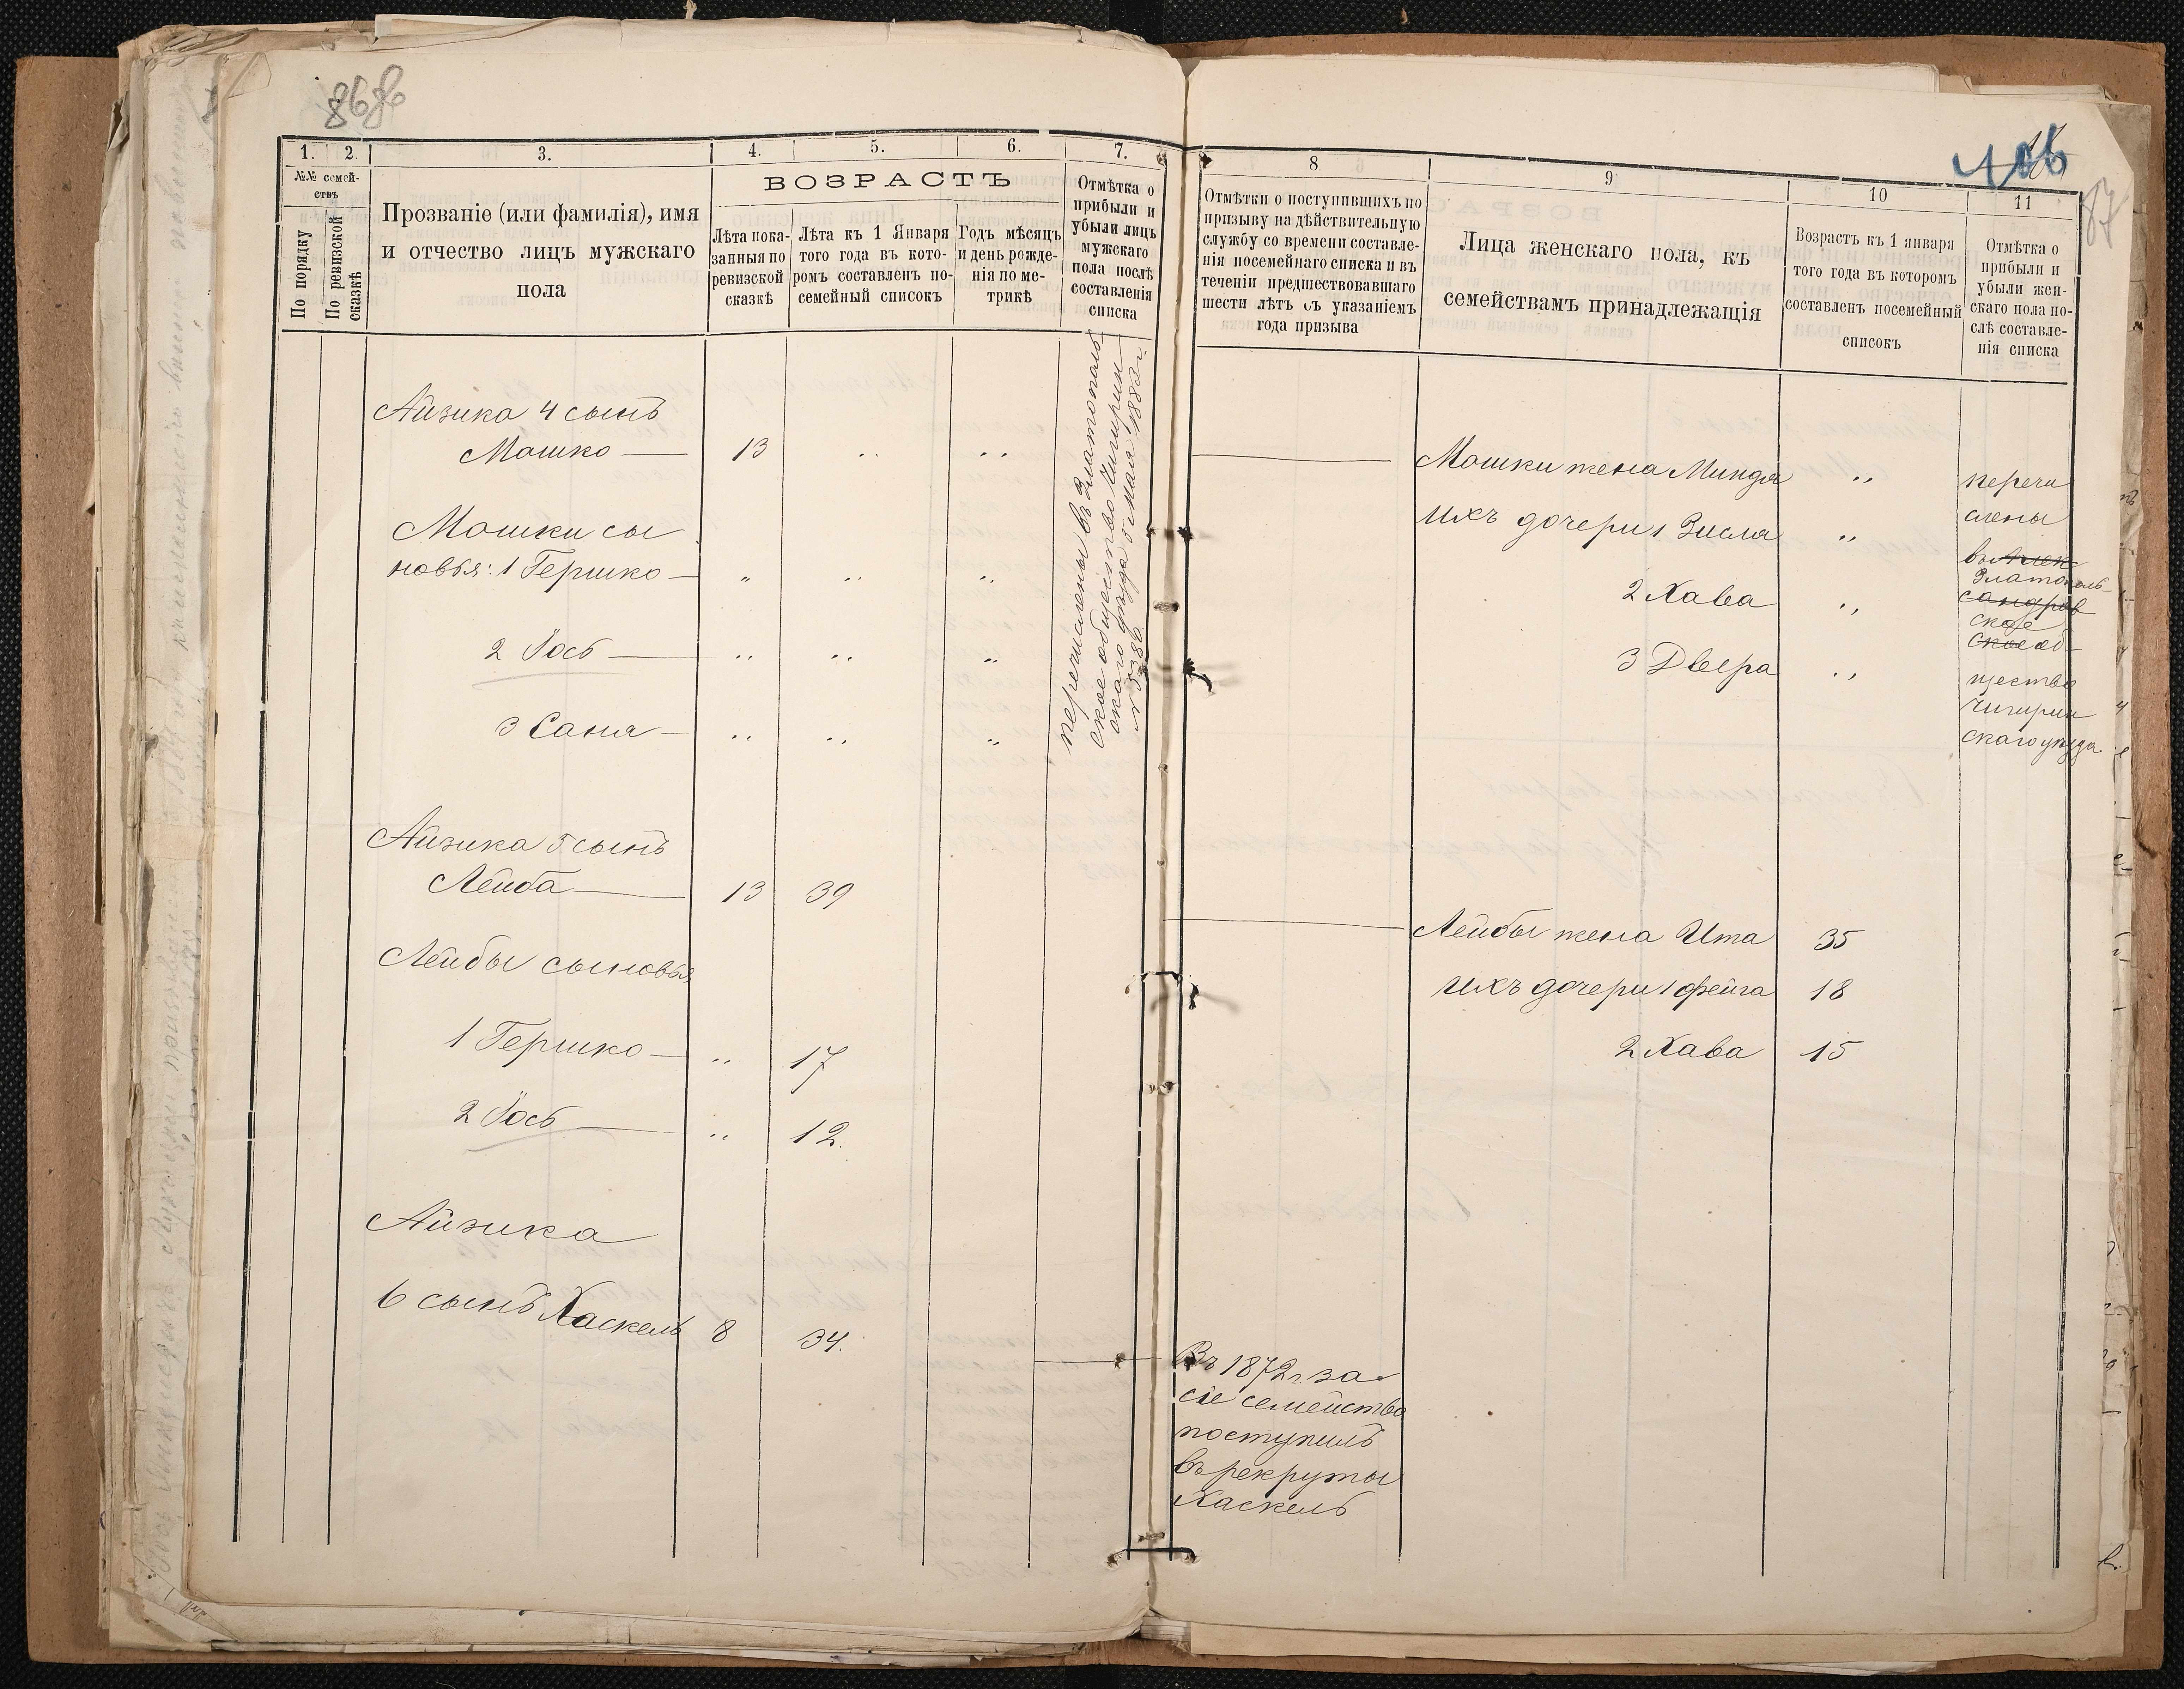 1. 2. 3. 4. 5. 6. 7.
№№ семей-
ствъ
По порядку
По ревизской
сказкѣ
Прозваніе (или фамилія), имя
и отчество лицъ мужскаго
пола
ВОЗРАСТЪ
Лѣта пока-
занныя по
ревизской
сказкѣ
Лѣта къ 1 Января
того года въ кото-
ромъ составленъ по-
семейный списокъ
Годъ мѣсяцъ
и день рожде-
нія по ме-
трикѣ
Отмѣтка о
прибыли и
убыли лицъ
мужскаго
пола послѣ
составленія
списка
Айзика 4 сынъ
Мошко — 13 " "
Мошки сы
новья: 1 Гершко — " " "
2 Іось — " " "
3 Саня — " " "
перечислены въ Златополь-
ское общество Чигирин
скаго уѣзда 5 мая 1883 г.
Айзика 5 сынъ
Лейба — 13 39
Лейбы сыновья
1 Гершко — " 17
2 Іось — " 12.
Айзика
6 сынъ Хаскель 8 34.
8 9 10 11
Отмѣтки о поступившихъ по
призыву на дѣйствительную
службу со времени составле-
нія посемейнаго списка и въ
теченіи предшествовавшаго
шести лѣтъ съ указаніемъ
года призыва
Лица женскаго пола, къ
семействамъ принадлежащія
Возрастъ къ 1 января
того года въ которомъ
составленъ посемейный
списокъ
Отмѣтка о
прибыли и
убыли жен-
скаго пола по-
слѣ составле-
нія списка
Мошки жена Миндля "
ихъ дочери 1 Зисля "
2 Хава "
3 Двейра "
перечи
слены
въ Алек-
Златополь-
сандров
ское
ское об-
щество
Чигирин
скаго уѣзда
Лейбы жена Ита 35
ихъ дочери 1 Фейга 18
2 Хава 15
Въ 1872 г. за
сіе семейство
поступилъ
въ рекруты
Хаскель